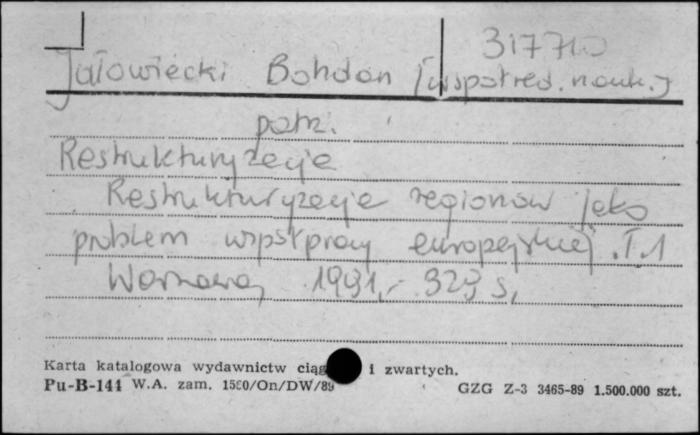 317710
Jałowiecki Bohdan [współred. nauk.]
patrz.
Restrukturyzacja
Restrukturyzacja regionów jako
problem współpracy europejskiej. T.1
Warszawa, 1991,- 323 s,
Karta katalogowa wydawnictw ciąg i zwartych.
Pu-B-144 W.A. zam. 1580/On/DW/89 GZG Z-3 3465-89 1.500.000 szt.